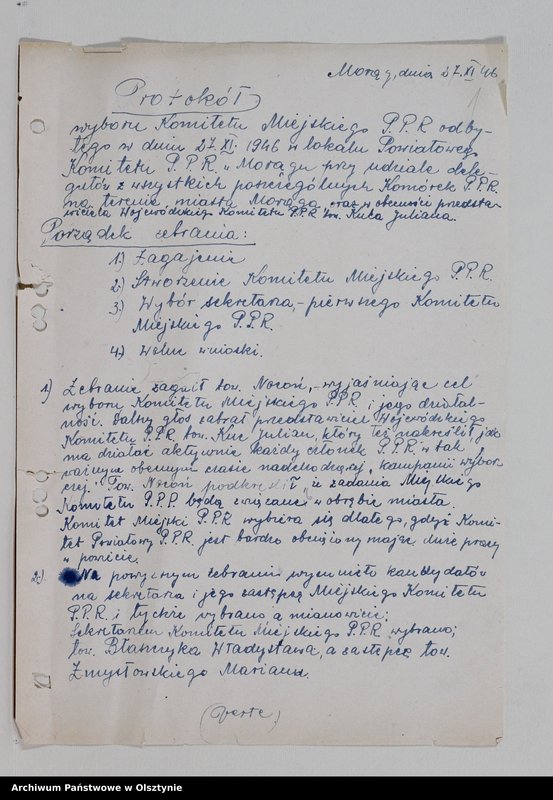 Morąg, dnia 27.XI 46
1
Protokół
wyboru Komitetu Miejskiego P.P.R odby-
tego w dniu 27.XI. 1946 w lokalu Powiatowego
Komitetu P.P.R. w Morągu przy udziale dele-
gatów z wszystkich poszczególnych Komórek P.P.R.
na terenie miasta Morąga oraz w obecności przedsta-
wiciela Wojewódzkiego Komitetu P.P.R tow. Kuca Juliana.
Porządek zebrania:
1.) Zagajenie
2.) Stworzenie Komitetu Miejskiego P.P.R.
3.) Wybór sekretarza, - pierwszego Komitetu
Miejskiego P.P.R.
4.) Wolne wnioski.
1) Zebranie zagaił tow. Nocoń, - wyjaśniając cel
wyboru Komitetu Miejskiego P.P.R. i jego działal-
ność. Dalszy głos zabrał przedstawiciel Wojewódzkiego
Komitetu P.P.R. tow. Kuc Julian, który też nakreślił jak
ma działać aktywnie każdy członek P.P.R. w tak
ważnym obecnym czasie nadchodzącej "kampanii wybor-
czej." Tow. Nocoń podkreślił, że zadania Miejskiego
Komitetu P.P.R. będą związane w obrębie miasta.
Komitet Miejski P.P.R. wybiera się dlatego, gdyż Komi-
tet Powiatowy P.P.R. jest bardzo obciążony mając dużo pracy
w powiecie.
2.) Na powyższym zebraniu wysunięto kandydatów
na sekretarza i jego zastępcę Miejskiego Komitetu
P.P.R. i tychże wybrano, a mianowicie;
Sekretarzem Komitetu Miejskiego P.P.R. wybrano;
tow. Władysława, a zastępcę tow.
Zmysłowskiego Mariana.
(verte)
Archiwum Państwowe w Olsztynie